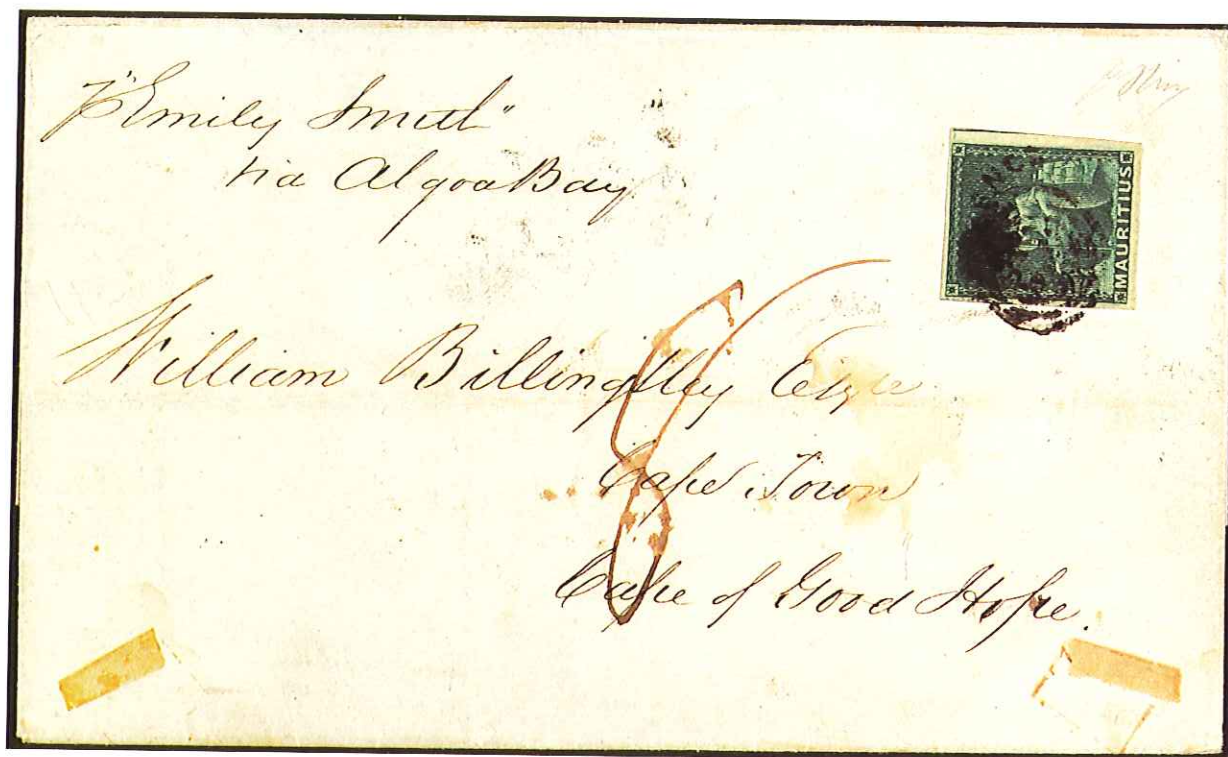 p "Emily Smith"
via Algoa Bay
MAURITIUS
William Billingsley Esqre
Cape Town
Cape of Good Hope.
8